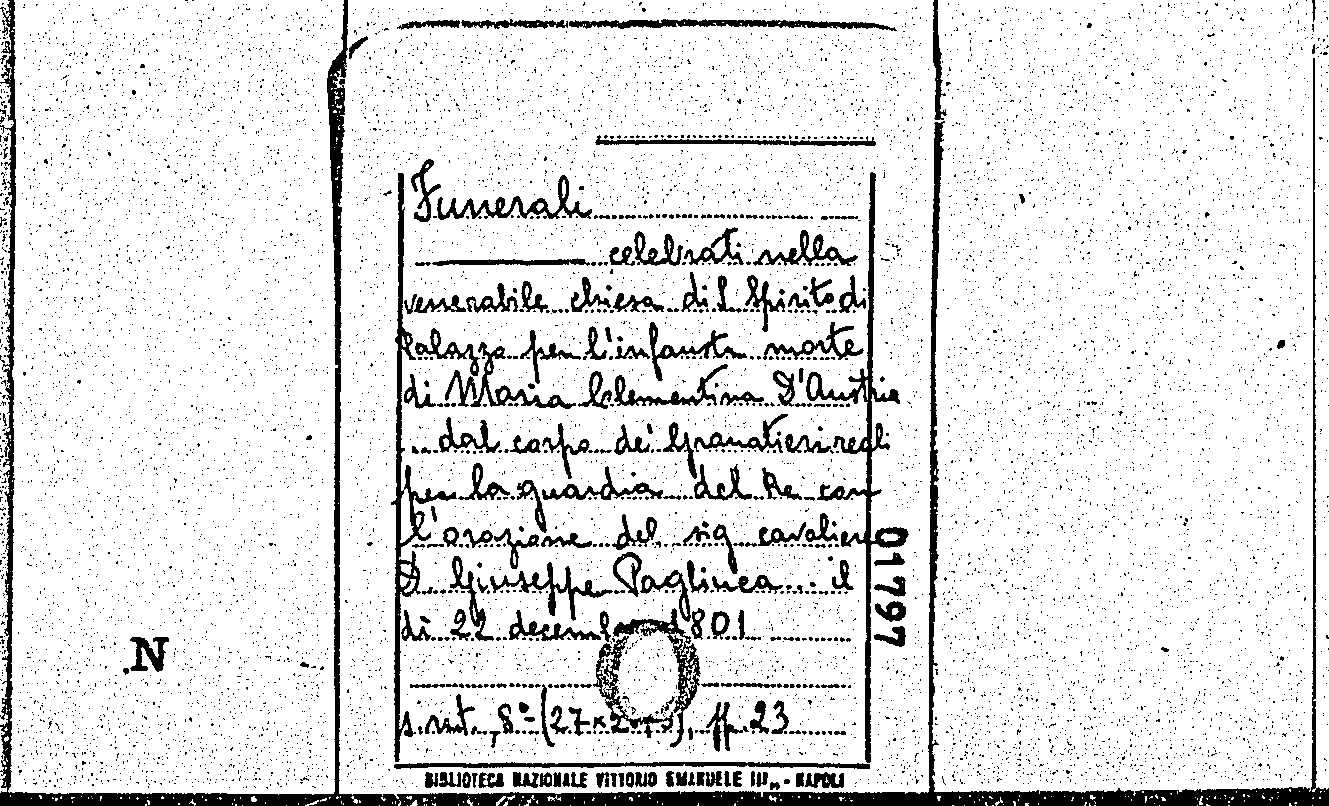 Funerali
celebrati nella
venerabile chiesa di S Spirito di
Palazzo per l'infausta morte
di Maria Clementina D'Austria
... dal corpo de' Granatieri reali
per la guardia del Re con
l'orazione del sig cavaliere
D. Giuseppe Pagliuca ... il
di 22 decembre 1801
s.n.t., 8°-(27× ), ff. 23
BIBLIOTECA NAZIONALE VITTORIO EMANUELE III„ - NAPOLI
01797
N